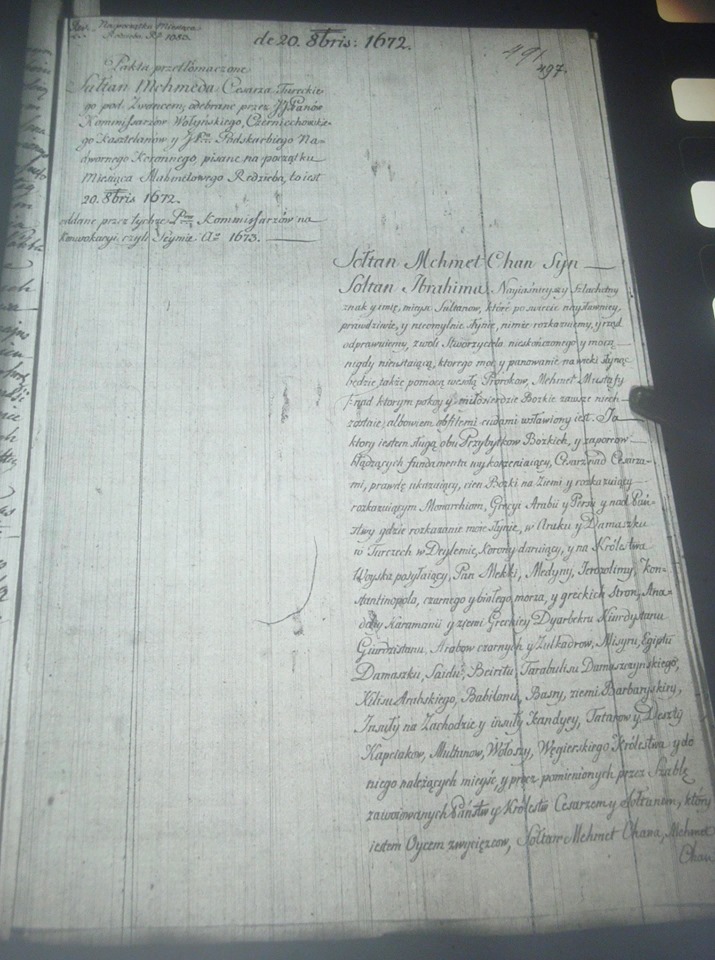 Na początku Miesiąca
Redzeba R? 1083.
de 20. 8bris: 1672.
491
497.
Pakta przetłomaczone
Sułtan Mehmeda Cesarza Tureckie-
go pod Zwancem, odebrane przez JJ Panów
Kommissarzow Wołyńskiego, Czerniechowskie-
go Kasztelanów y J Podskarbiego Na-
dwornego Koronnego pisane na początku
Miesiąca Mahmetowego Redzieba, to iest
20. 8bris 1672.
oddane przez tychże Kommissarzów na
Konwokacyi czyli Seymie Ao 1673.
Sołtan Mehmet Chan Syn
Sołtan Ibrahima, Nayiaśnieyszy Szlachetny
znak y imię, mieysc Sultanow, które po świecie naysławniey,
prawdziwie, y nieomylnie słynie, nimie rozkazuiemy, y rząd
odprawuiemy, z woli Stworzyciela nieskończonego y mocą
nigdy nieustaiącą, ktorego moc y panowanie na wieki słynąć
będzie, także pomocą wesołą Prorokow, Mehmet Mustafy
/: nad ktorym pokoy y miłosierdzie Bozkie zawsze niech
zostaie; albowiem obfitemi cudami wsławiony iest. Ja
ktory iestem sługą obu Przybytkow Bozkich, y zaporcow
błądzących fundamenta wykorzeniaiący, Cesarz nad Cesarza-
mi, prawdę ukazuiący, cień Bozki na Ziemi y rozkazuiący
rozkazuiącym Monarchiom, Grecyi Arabii y Persyi y nad Pań-
stwy gdzie rozkazanie moie słynie, w Araku y Damaszku
w Turczech w Deylemie, korony daruiący, y na Królestwa
Woyska posyłaiący, Pan Mekki, Medyny, Jerozolimy, Kon-
stantinopola, czarnego y białego morza, y greckich stron, Ana-
doły Karamanii y ziemi Greckiey Dyarbekru Kiurdystanu
Giurdzistanu, Arabow czornych y Zulkadrow, Misyru, Egiptu
Damaszku, Saidu, Beirutu, Tarabulusu Damaszzynskiego,
Kilisu Arabskiego, Babilonu, Basry, ziemi Barbaryskiey,
Insuły na Zachodzie y insuły Kandyey, Tatarow y Deszty
Kapciakow, Multanow, Wołoszy, Węgierskiego Królestwa y do
niego należących mieysc, y procz pomienionych przez Szablę
zawoiowanych Państw y Królestw Cesarzem y Sołtanem, który
iestem Oycem zwyciezcow, Sołtan Mehmet Chana, Mehmet
Chan